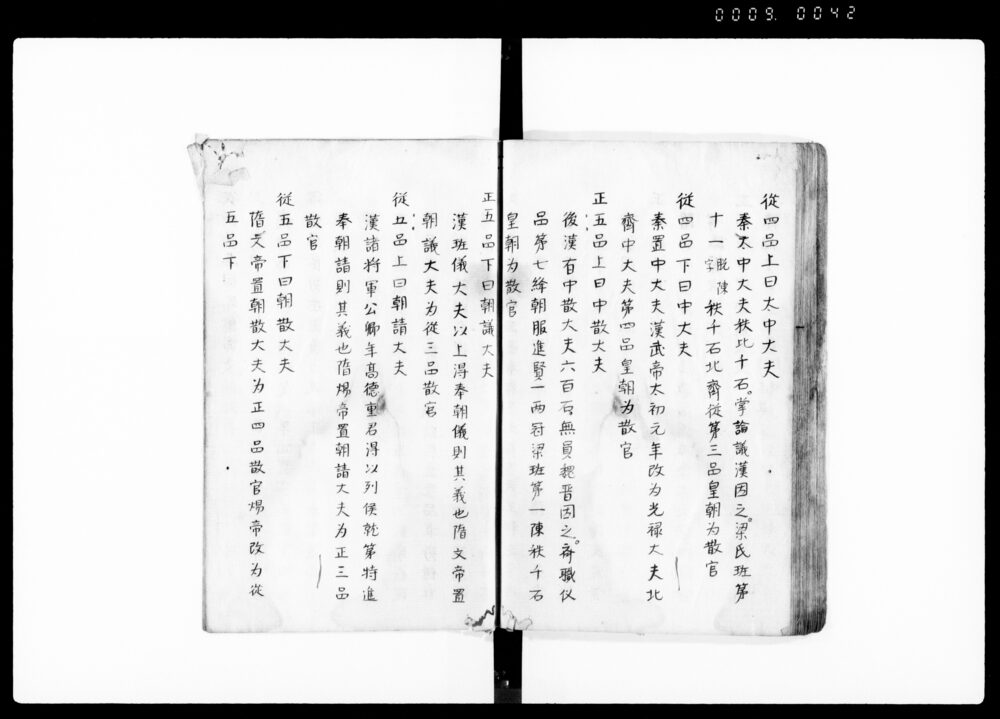 0009. 0042
從四品上曰太中大夫
秦太中大夫秩比千石。掌論議漢因之。梁氏班第
十一脱陳字秩千石北齊從第三品皇朝为散官
從四品下曰中大夫
秦置中大夫漢武帝太初元年改为光禄大夫北
齊中大夫第四品皇朝为散官
正五品上曰中散大夫
後漢有中散大夫六百石無員魏晋因之。斉職仪
品第七绛朝服進賢一两冠梁班第一陳秩千石
皇朝为散官
正五品下曰朝議大夫
漢班儀大夫以上得奉朝儀則其義也隋文帝置
朝議大夫为從三品散官
從五品上曰朝請大夫
漢諸將軍公卿年高德重君得以列侯就第特進
奉朝請則其義也隋煬帝置朝請大夫为正三品
散官
從五品下曰朝散大夫
隋文帝置朝散大夫为正四品散官煬帝改为從
五品下